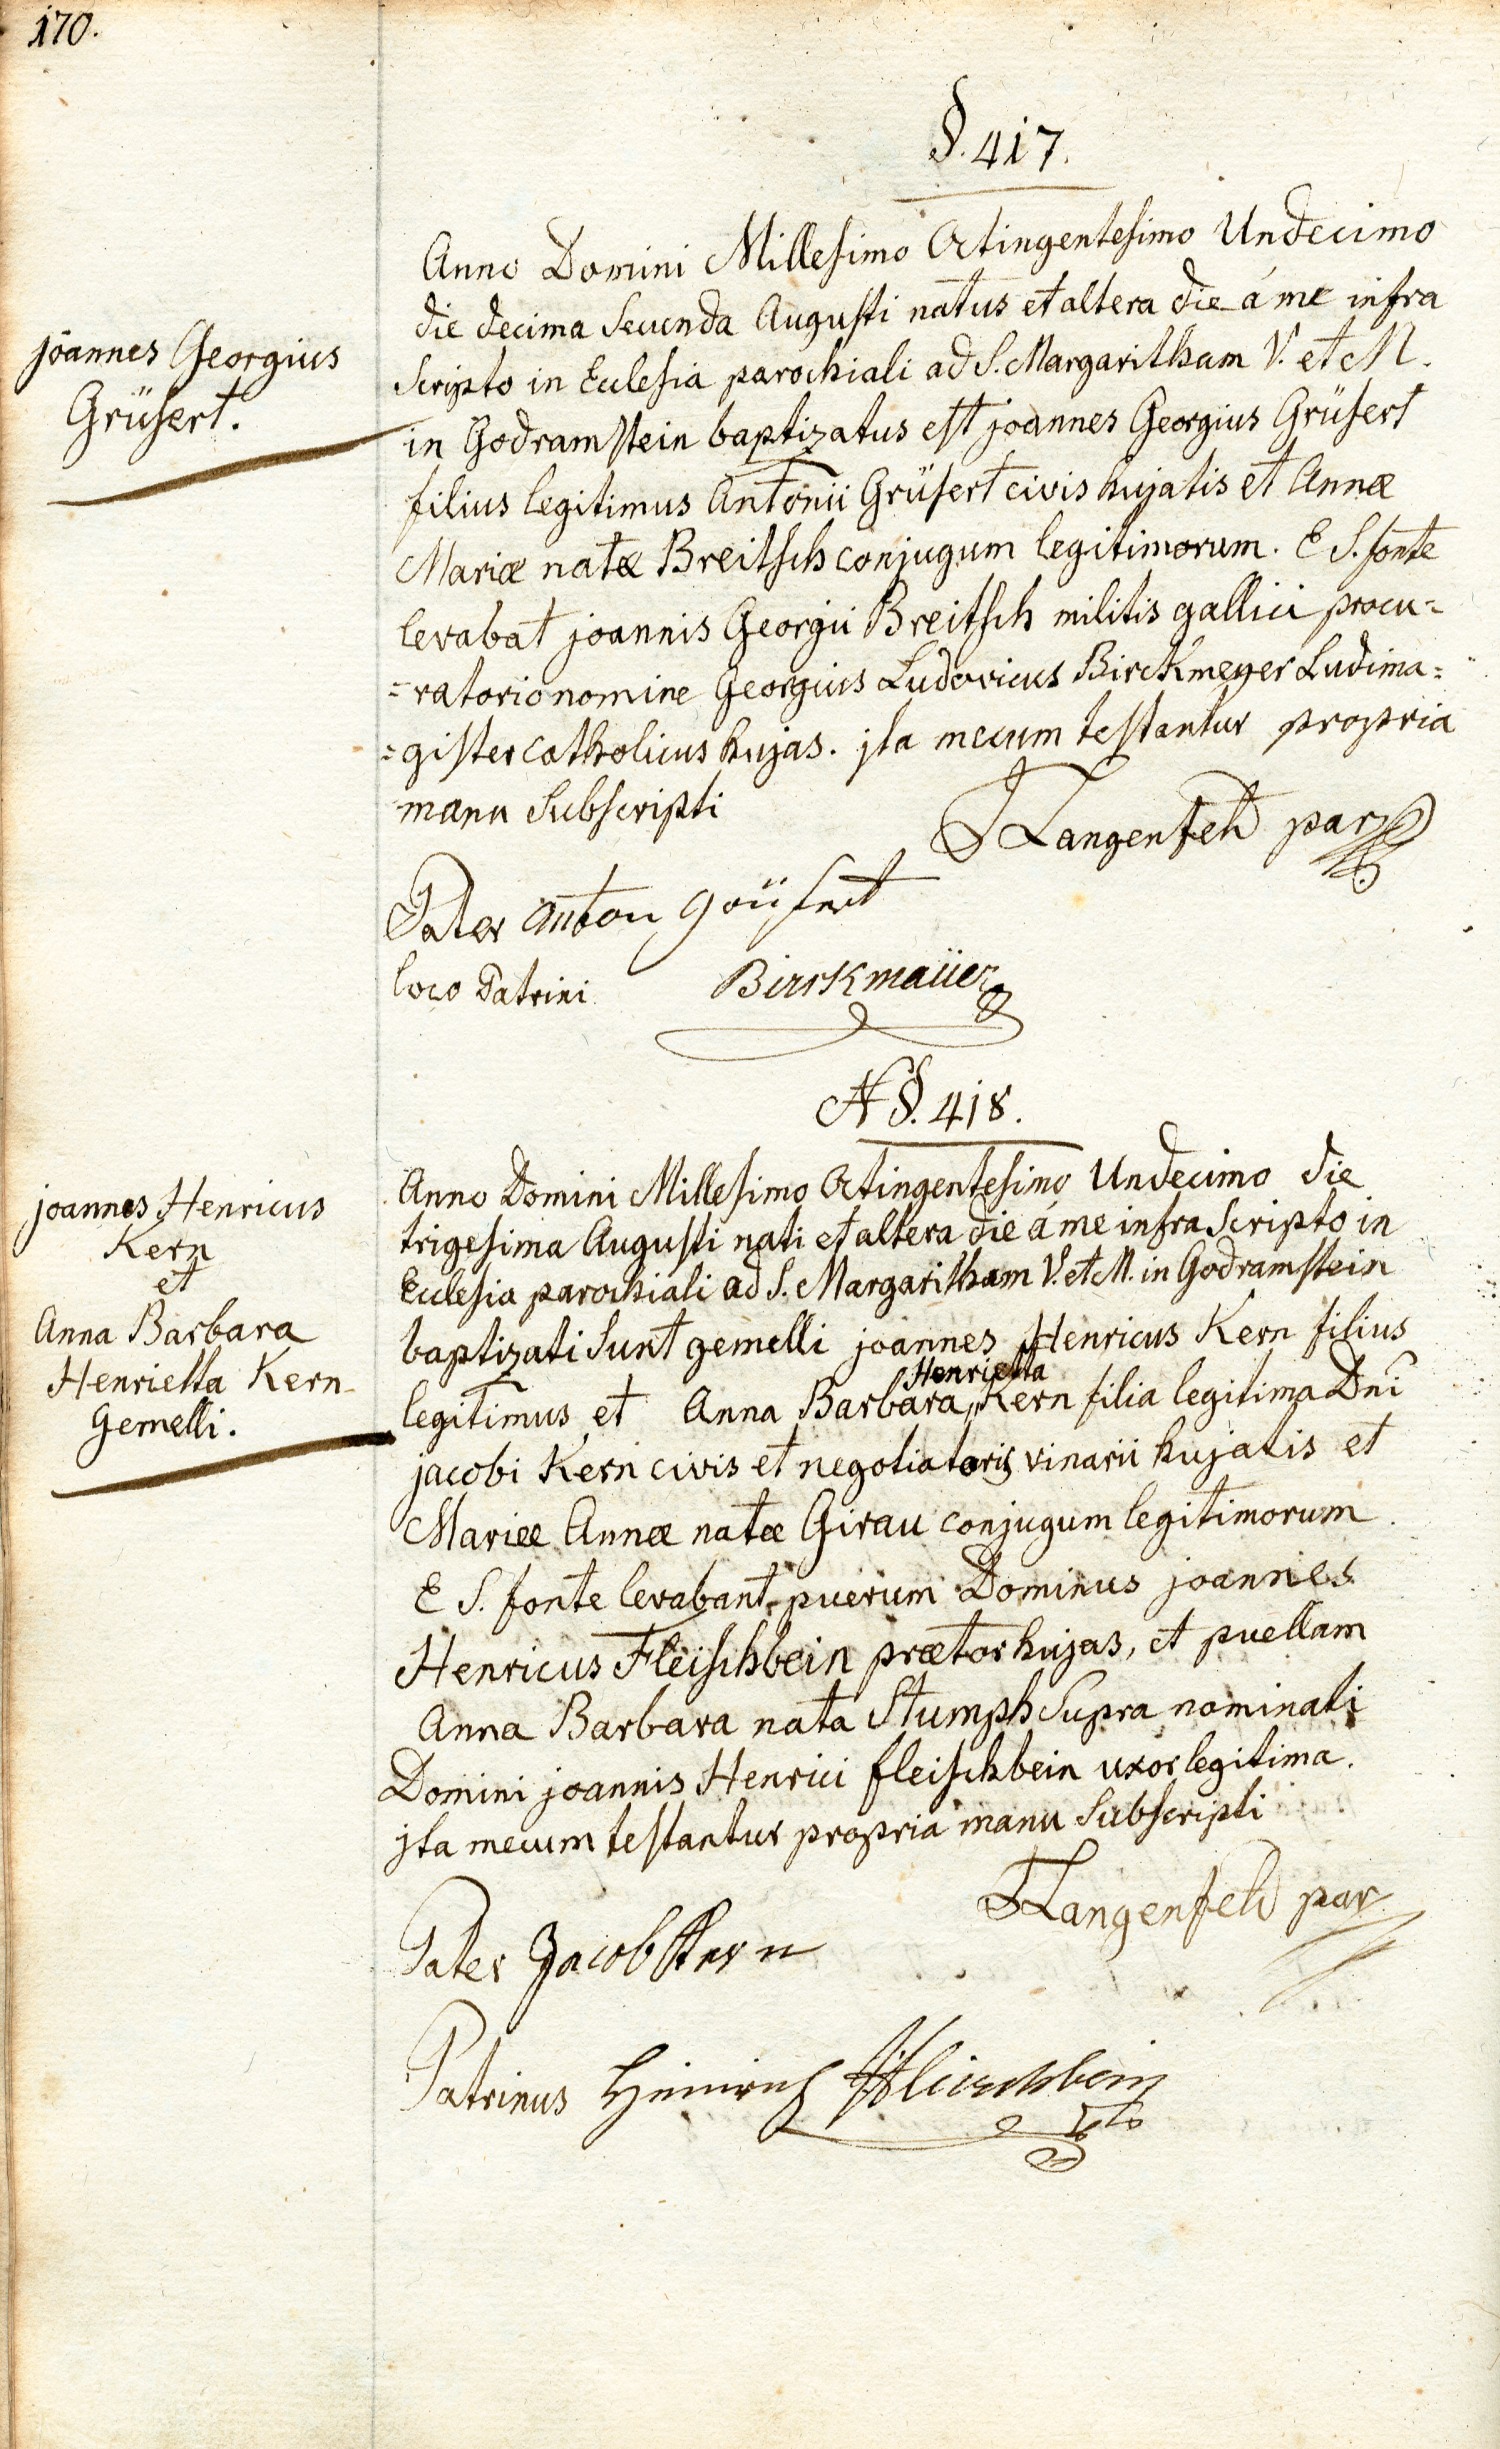 170.
§. 417.
joannes Georgius
Grüsert.
Anno Domini Millesimo Octingentesimo Undecimo
die decima secunda Augusti natus et altera die á me infra
scripto in Ecclesia parochiali ad S. Margaritham V. et M.
in Godramstein baptizatus est joannes Georgius Grüsert
filius legitimus Antonii Grüsert civis hujatis et Annæ
Mariæ natæ Breitsch conjugum legitimorum. E S. fonte
levabat joannis Georgii Breitsch militis gallici procu=
=ratorio nomine Georgius Ludovicus Birckmeyer Ludima=
=gister catholicus hujas. jta mecum testantur propria
manu subscripti
FLangenfeld par
Pater Anton Grüsert
loco Patrini Birckmaÿer
N §. 418.
joannes Henricus
Kern
et
Anna Barbara
Henrietta Kern
Gemelli.
Anno Domini Millesimo Octingentesimo Undecimo die
trigesima Augusti nati et altera die á me infra scripto in
Ecclesia parochiali ad S. Margaritham V. et M. in Godramstein
baptizati sunt gemelli joannes Henricus Kern filius
Henrietta
legitimus et Anna Barbara, Kern filia legitima Dni
jacobi Kern civis et negotiatoris vinarii hujatis et
Mariæ Annæ natæ Girau conjugum legitimorum
E S. fonte levabant puerum Dominus joannes
Henricus Fleischbein prætor hujas, et puellam
Anna Barbara nata Stumph supra nominati
Domini joannis Henrici fleischbein uxor legitima.
jta mecum testantur propria manu subscripti
FLangenfeld par
Pater Jacob Kern
Patrinus Heinrich Fleischbein